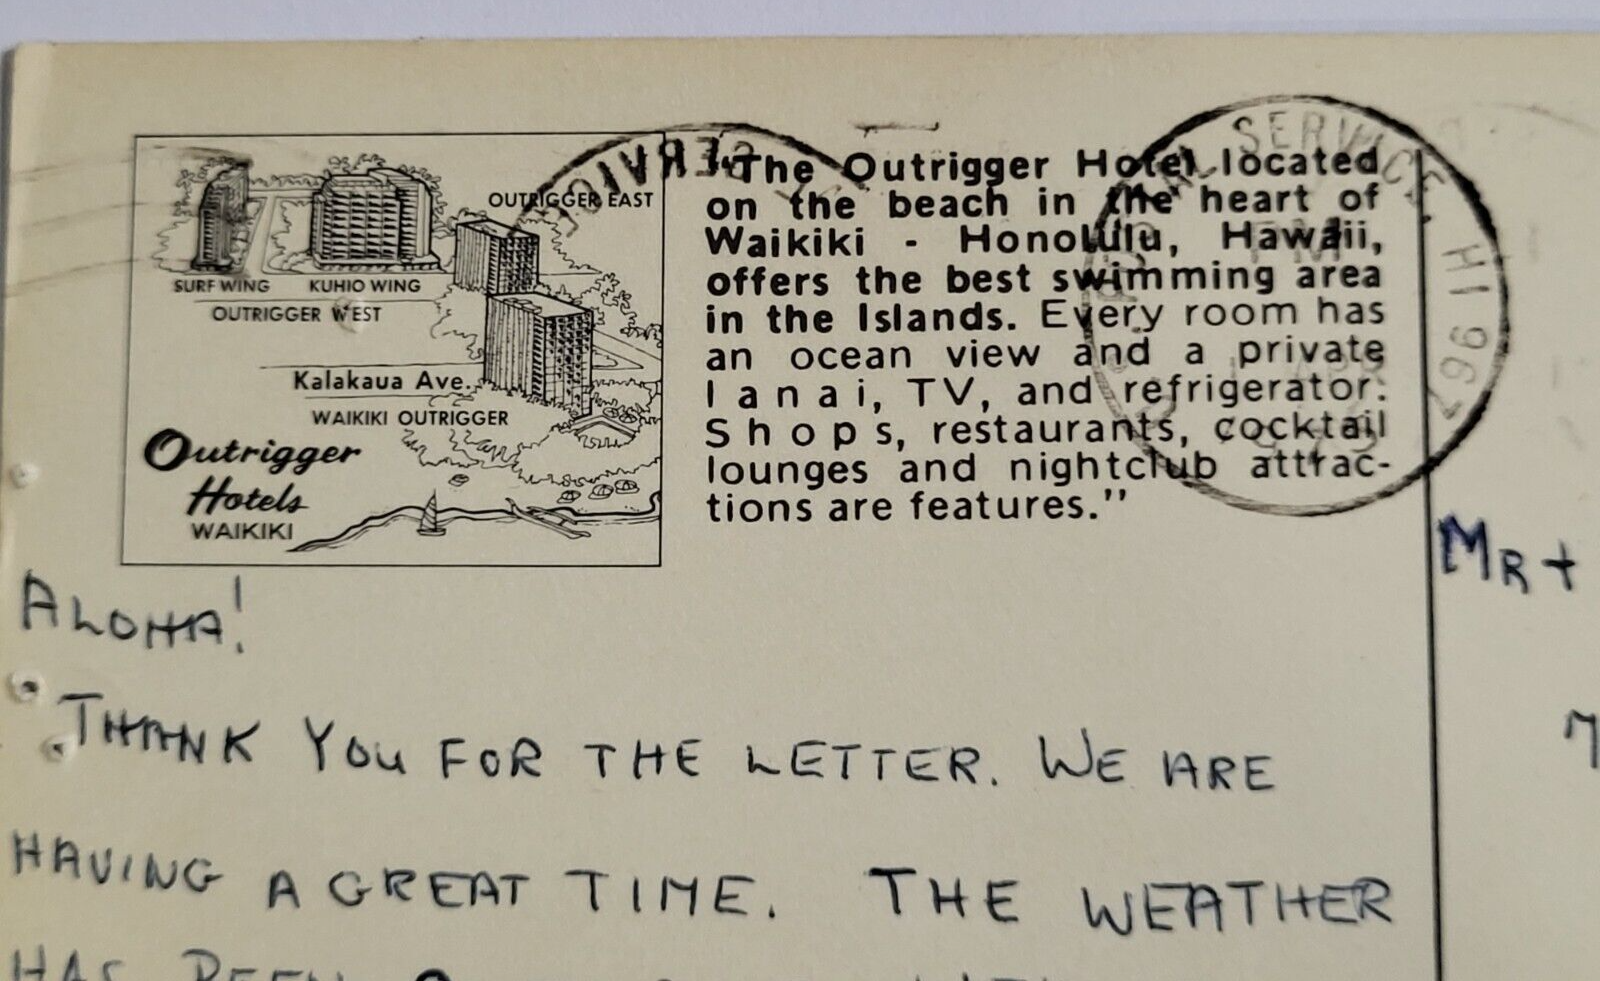 OUTRIGGER EAST
SURF WING KUHIO WING
OUTRIGGER WEST
Kalakaua Ave.
WAIKIKI OUTRIGGER
Outrigger
Hotels
WAIKIKI
"The Outrigger Hotel located
on the beach in the heart of
Waikiki - Honolulu, Hawaii,
offers the best swimming area
in the Islands. Every room has
an ocean view and a private
lanai, TV, and refrigerator.
Shops, restaurants, cocktail
lounges and nightclub attrac-
tions are features."
SERVICE, HI 967
PM
MR +
ALOHA!
THANK YOU FOR THE LETTER. WE ARE
HAVING A GREAT TIME. THE WEATHER
HAS BEEN